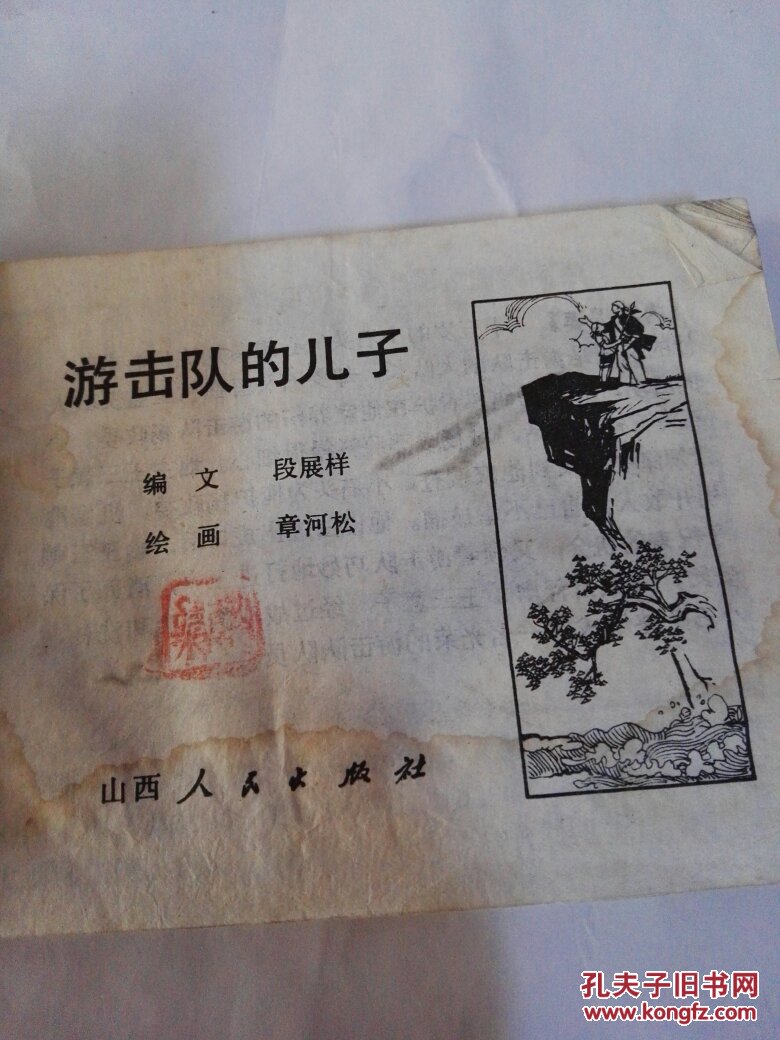 游击队的儿子
编 文 段展样
绘 画 章河松
山西人民出版社
孔夫子旧书网
www.kongfz.com